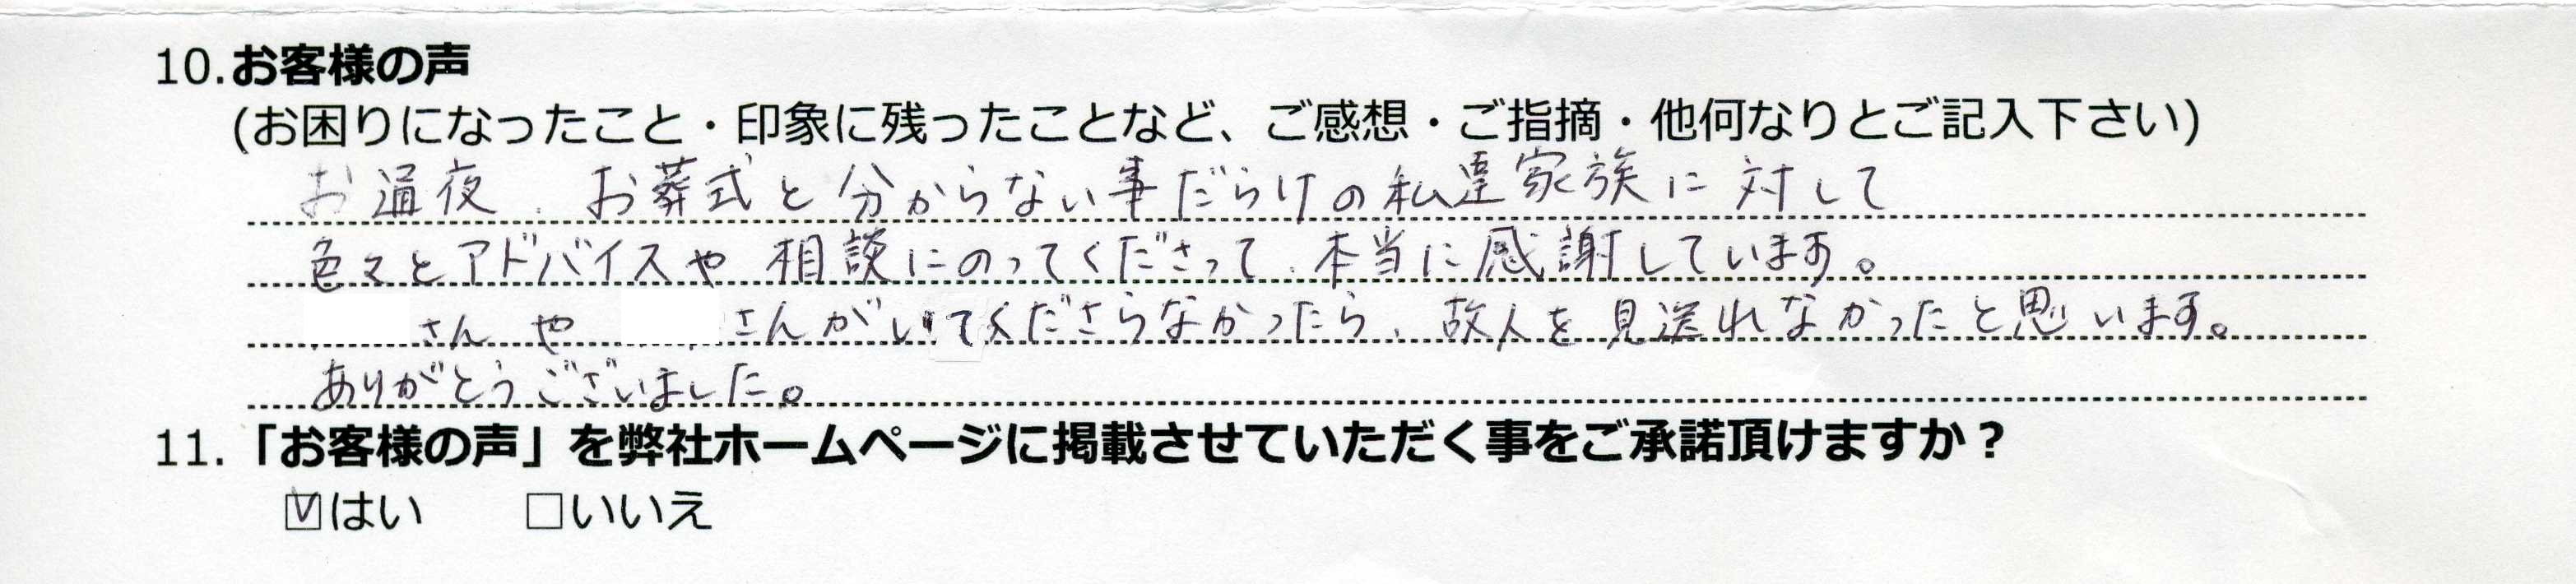 10.お客様の声
(お困りになったこと・印象に残ったことなど、ご感想・ご指摘・他何なりとご記入下さい)
お通夜、お葬式と分からない事だらけの私達家族に対して
色々とアドバイスや相談にのってくださって、本当に感謝しています。
さんや さんがいてくださらなかったら、故人を見送れなかったと思います。
ありがとうございました。
11.「お客様の声」を弊社ホームページに掲載させていただく事をご承諾頂けますか？
☑はい □いいえ